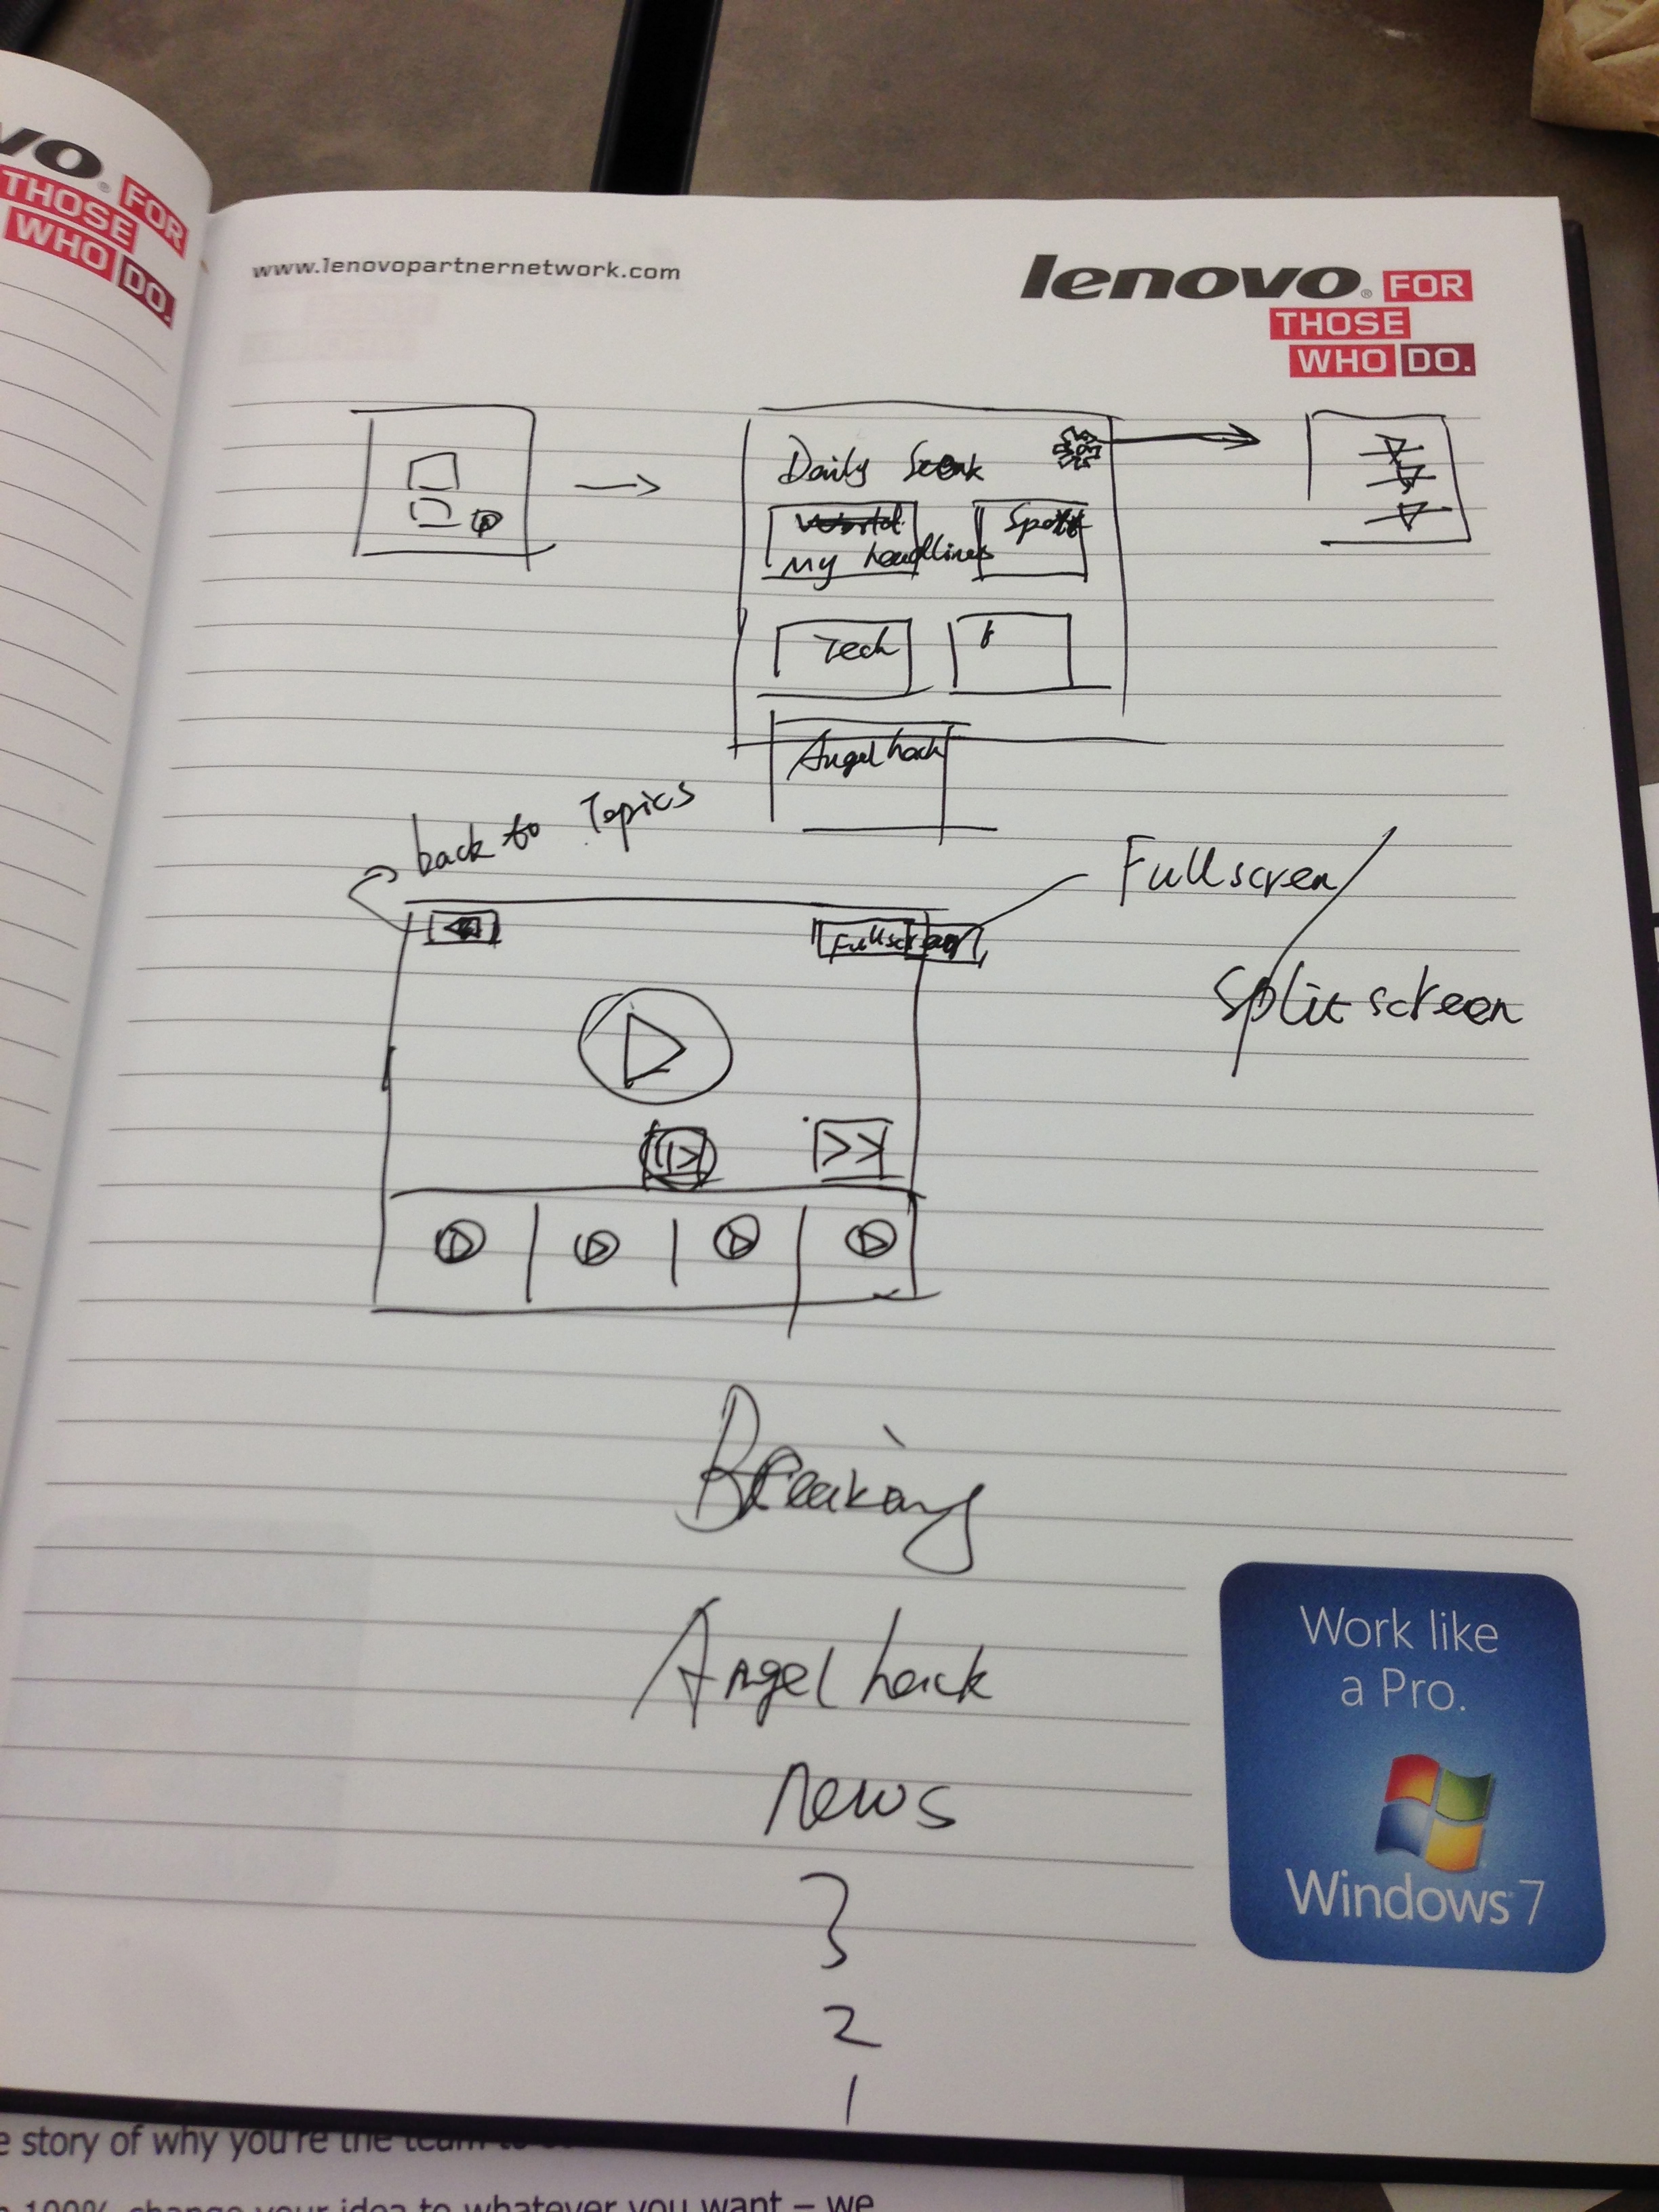 VO. FOR
THOSE
WHO DO.
www.lenovopartnernetwork.com
lenovo. FOR
THOSE
WHO DO.
Daily
My headlines
Tech
Angelhack
back to Topics
Fullscren
Fullscreen
Split screen
Breaking
Angelhack
news
3
2
1
Work like
a Pro.
Windows 7
e story of why you're the team to
100% change your idea to whatever you want – we